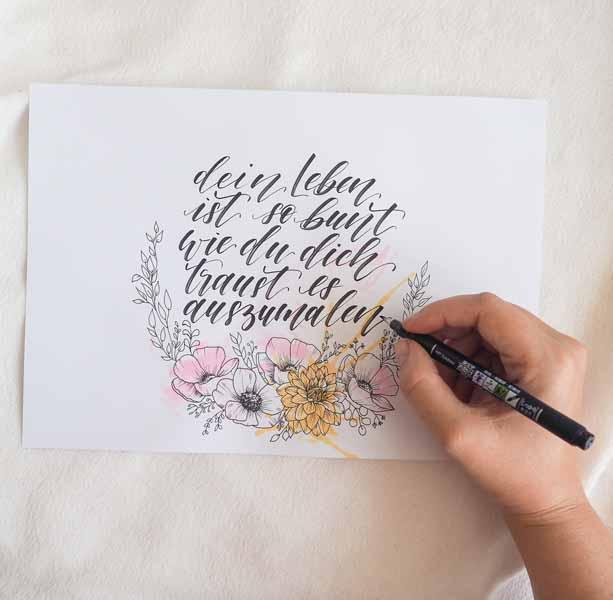 dein leben
ist so bunt
wie du dich
traust es
auszumalen